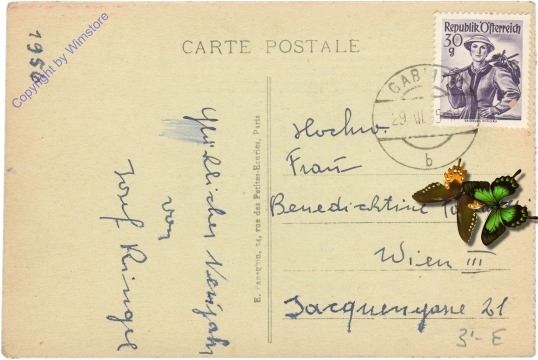 1950
Copyright by Wimstore
CARTE POSTALE
Republik Österreich
30
g
GAB
29. III. 5
b
Glückliches Neujahr
von
Josef Ringel
E. 24, rue des Petites-Ecuries, Paris
Hochw.
Frau
Benedichtine
Wien III
Jacquingasse 21
3'- E